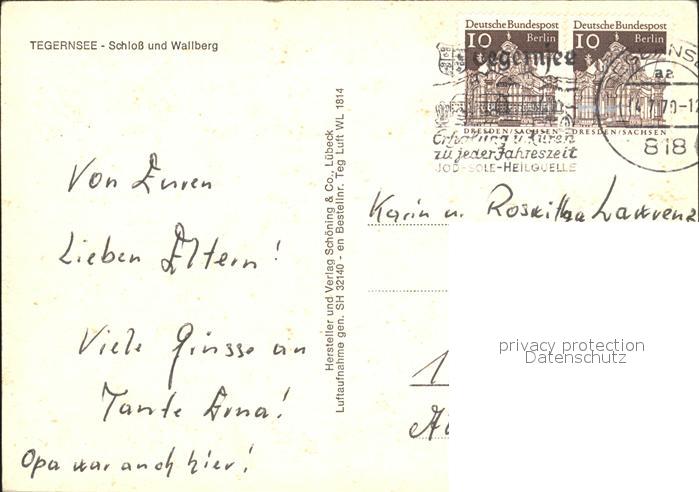 TEGERNSEE - Schloß und Wallberg
Deutsche Bundespost
10 Berlin
DRESDEN/SACHSEN
Deutsche Bundespost
10 Berlin
DRESDEN/SACHSEN
tegernsee
Erholung u. Kuren
zu jeder Jahreszeit
JOD-SOLE-HEILQUELLE
TEGERNSE
aa
14.7.70-12
818
Von Euren
Lieben Eltern!
Viele Grüsse an
Tante Erna!
Opa war auch hier!
Hersteller und Verlag Schöning & Co., Lübeck
Luftaufnahme gen. SH 32140 - en Bestellnr. Teg Luft WL 1814
Karin u. Roswitha Lawrenz
1
privacy protection
Datenschutz